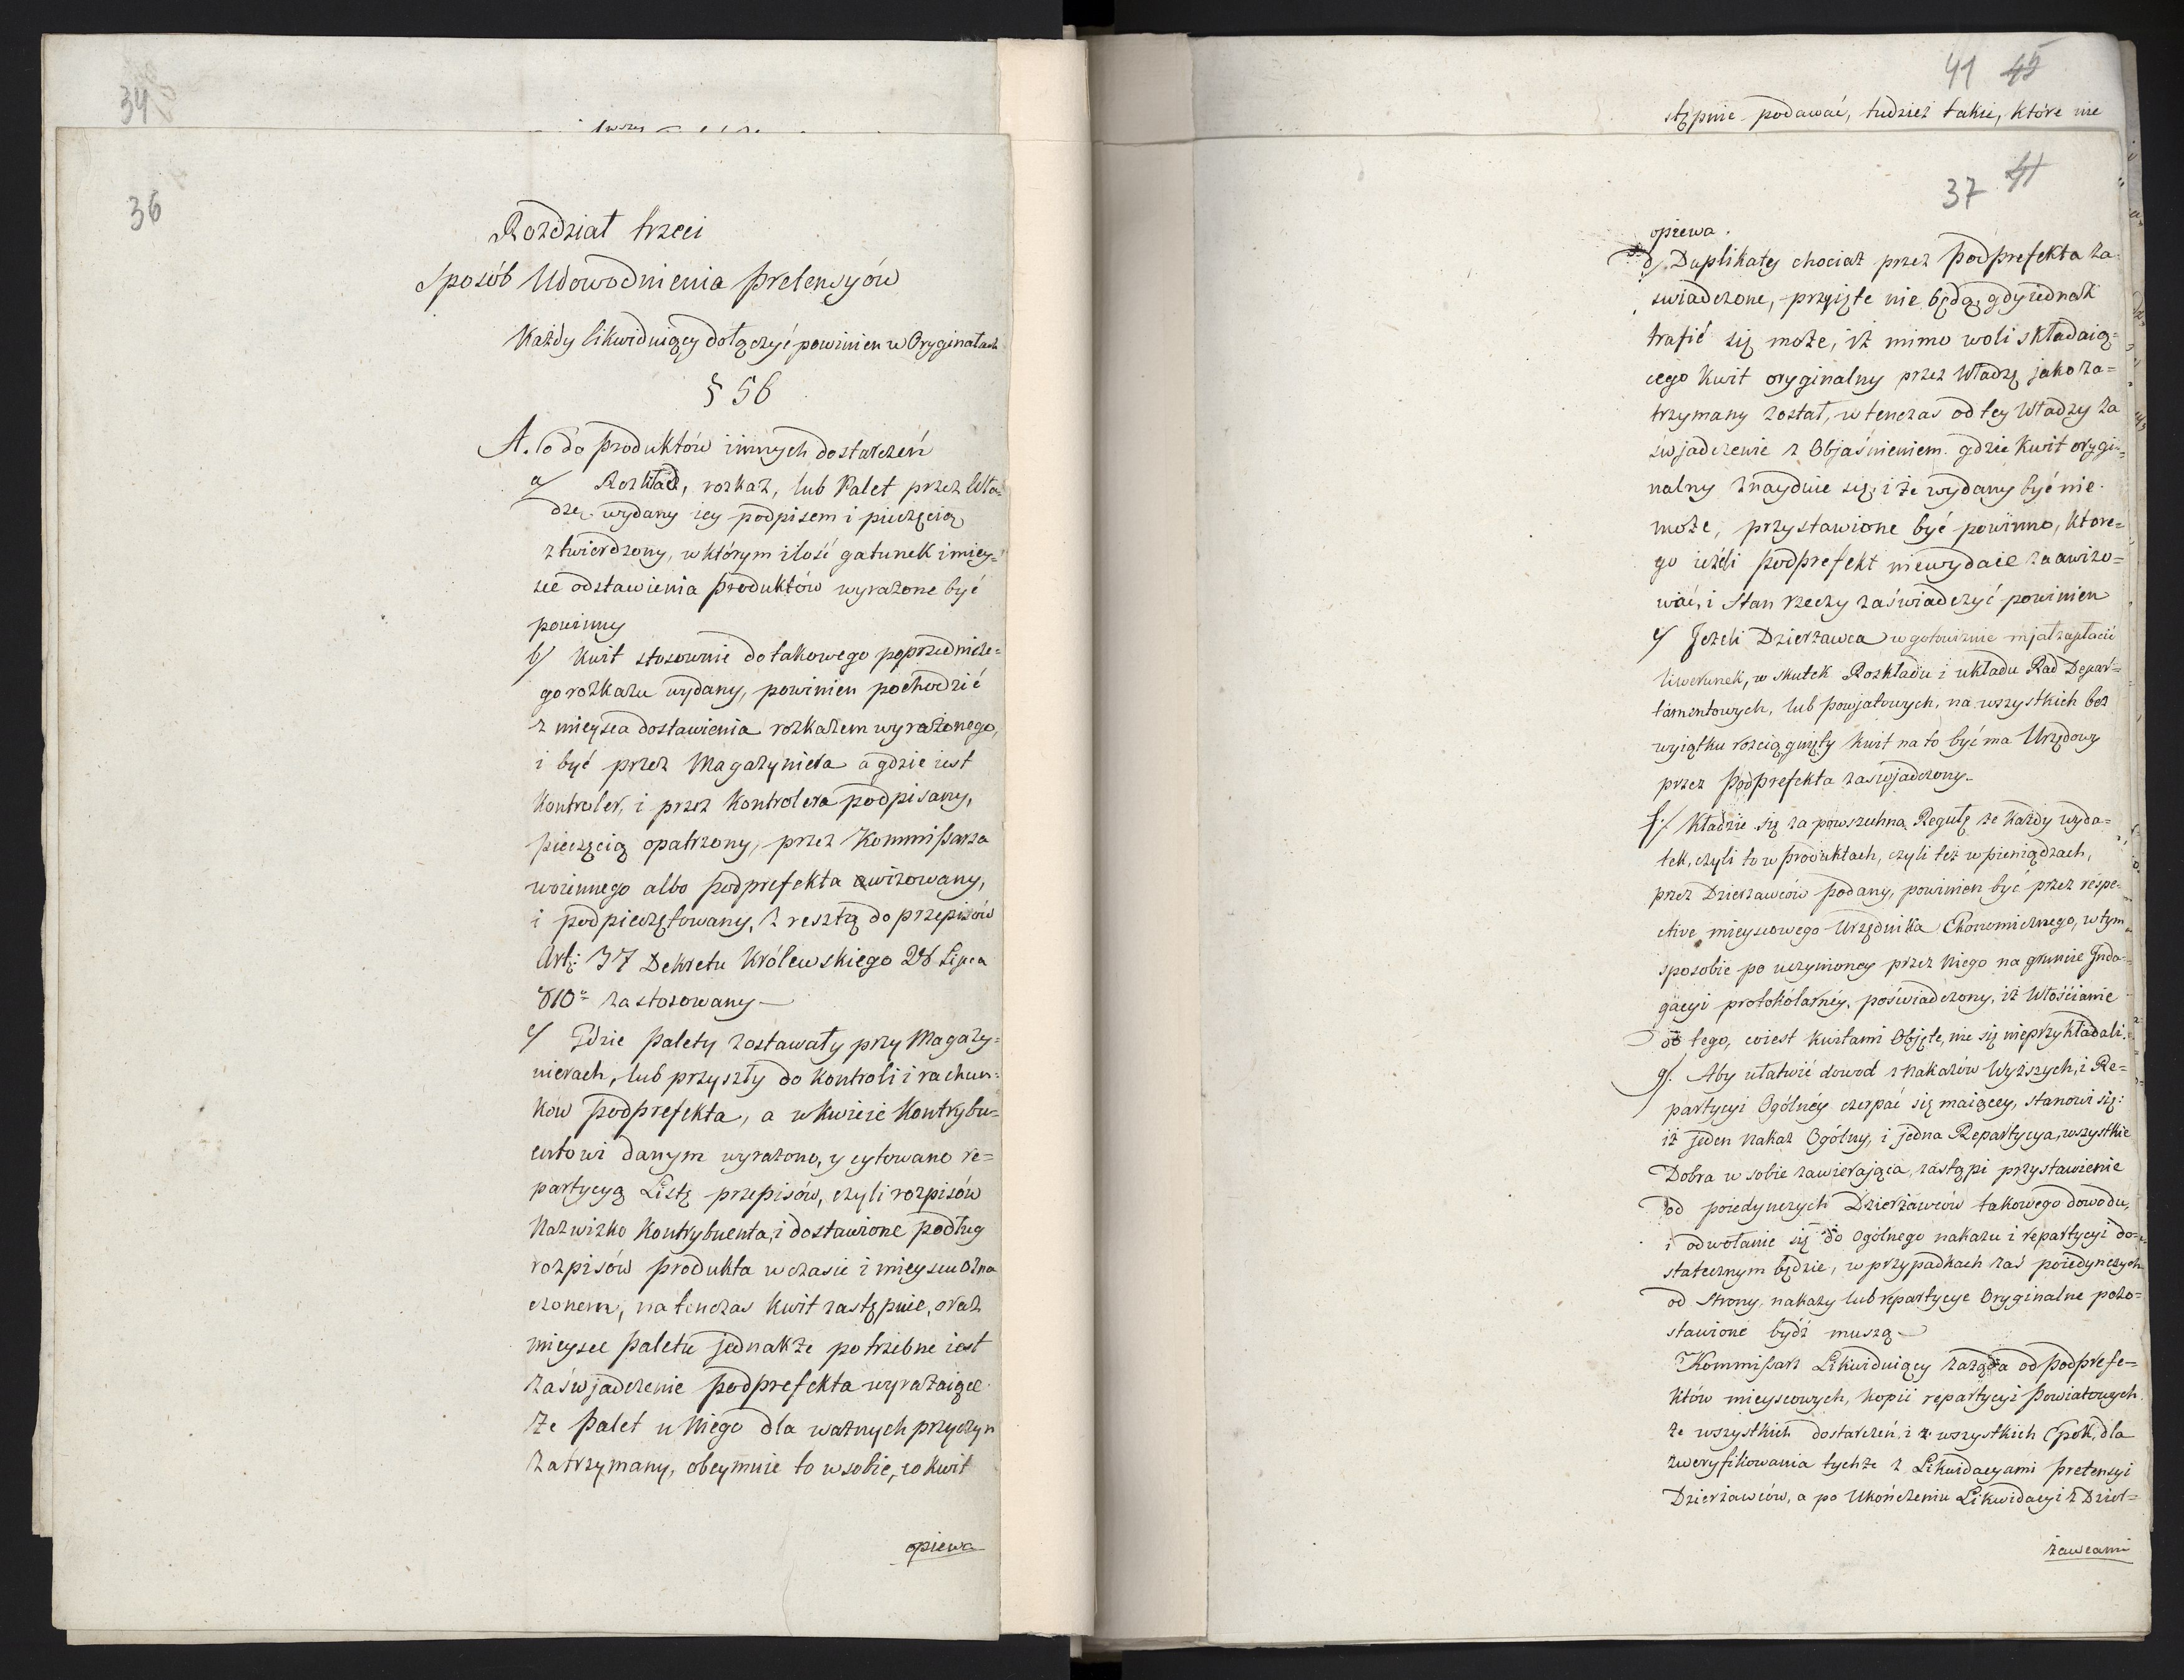 34
36
Rozdział trzeci
Sposób Udowodnienia Pretensyów
Każdy likwiduiący dołączyć powinien w Oryginałach
§ 56
A. Co do Produktów i innych dostarczeń
a/ Rozkład, rozkaz, lub Palet przez Wła=
dzę wydany iey podpisem i pieczęcią
ztwierdzony, w którym ilość gatunek i miey=
sce odstawienia Produktów wyrażone być
powinny
b/ Kwit stosownie do takowego poprzednicze=
go rozkazu wydany, powinien pochodzić
z mieysca dostawienia rozkazem wyrażonego,
i być przez Magazyniera a gdzie iest
Kontroler, i przez Kontrolera podpisany,
pieczęcią opatrzony, przez Kommissarza
woiennego albo Podprefekta awizowany,
i podpieczętowany, z resztą do przepisów
Art: 37 Dekretu Królewskiego 28 Lipca
810º zastosowany—
c/ Gdzie Palety zostawały przy Magazy=
nierach, lub przyszły do Kontroli i rachun=
ków Podprefekta, a w Kwicie Kontrybu=
entowi danym wyrażono, y cytowano re=
partycyą Listę przepisów, czyli rozpisów
Nazwisko Kontrybuenta, i dostawione podług
rozpisów Produkta w czasie i mieyscu ozna
czonem, natenczas Kwit zastępuie, oraz
mieysce Paletu jednakże potrzebne iest
zaświadczenie Podprefekta wyrażaiące
że Palet u Niego dla ważnych przyczyn
zatrzymany, obeymuie to w sobie, co Kwit
opiewa
41 42
stępnie podawać, tudzież takie, które nie
37 41
opiewa.
d/. Duplikaty chociaż przez Podprefekta za
swiadczone, przyięte nie będą, gdy iednak
trafić się może, iż mimo woli składaią=
cego Kwit oryginalny przez Władzę jako za=
trzymany został, w tenczas od tey Władzy za
świadczenie z Objaśnieniem gdzie Kwit orygi=
nalny znayduie się, i że wydany być nie
może, przystawione być powinno, które=
go ieżeli Podprefekt niewydaie zaawizo=
wać, i Stan rzeczy zaświadczyć powinien
e/ Jeżeli Dzierżawca w gotowiznie miał zapłacić
liwerunek, w skutek Rozkładu i układu Rad Depar=
tamentowych, lub Powjatowych, na wszystkich bez
wyiątku rozciągnięty Kwit na to być ma Urzędowy
przez Podprefekta zaswjadczony—
f./ Kładzie się za powszechną Regułę że każdy wyda=
tek, czyli to w Produktach, czyli też w pieniądzach,
przez Dzierżawców podany, powinien być przez respe=
ctive mieyscowego Urzędnika Ekonomicznego, w tym
sposobie po uczynioney przez Niego na gruncie Inda=
gacyi protokólarnéy, poświadczony, iż Włościanie
do tego, co iest Kwitami Objęte, nie się nieprzykładali.
g/. Aby ułatwić dowod z nakazów Wyższych, i Re=
partycyi Ogólnéy czerpać się maiącey, stanowi się:
iż jeden nakaz Ogólny, i jedna Repartycya, wszystkie
Dobra w sobie zawierająca, zastąpi przystawienie
od poiedynczych Dzierżawców takowego dowodu,
i odwołanie się do Ogólnego nakazu i repartycyi do=
statecznym będzie, w przypadkach zaś poiedynczych
od Strony, nakazy lub repartycye Oryginalne pozo=
stawione bydź muszą—
Kommissarz Likwiduiący zażąda od Podprefe=
któw mieyscowych, kopii repartycyi Powiatowych
ze wszystkich dostarczeń, i z wszystkich Epok, dla
zweryfikowania tychże z Likwidacyami Pretensyi
Dzierżawców, a po Ukończeniu Likwidacyi z Dzier=
żawcami